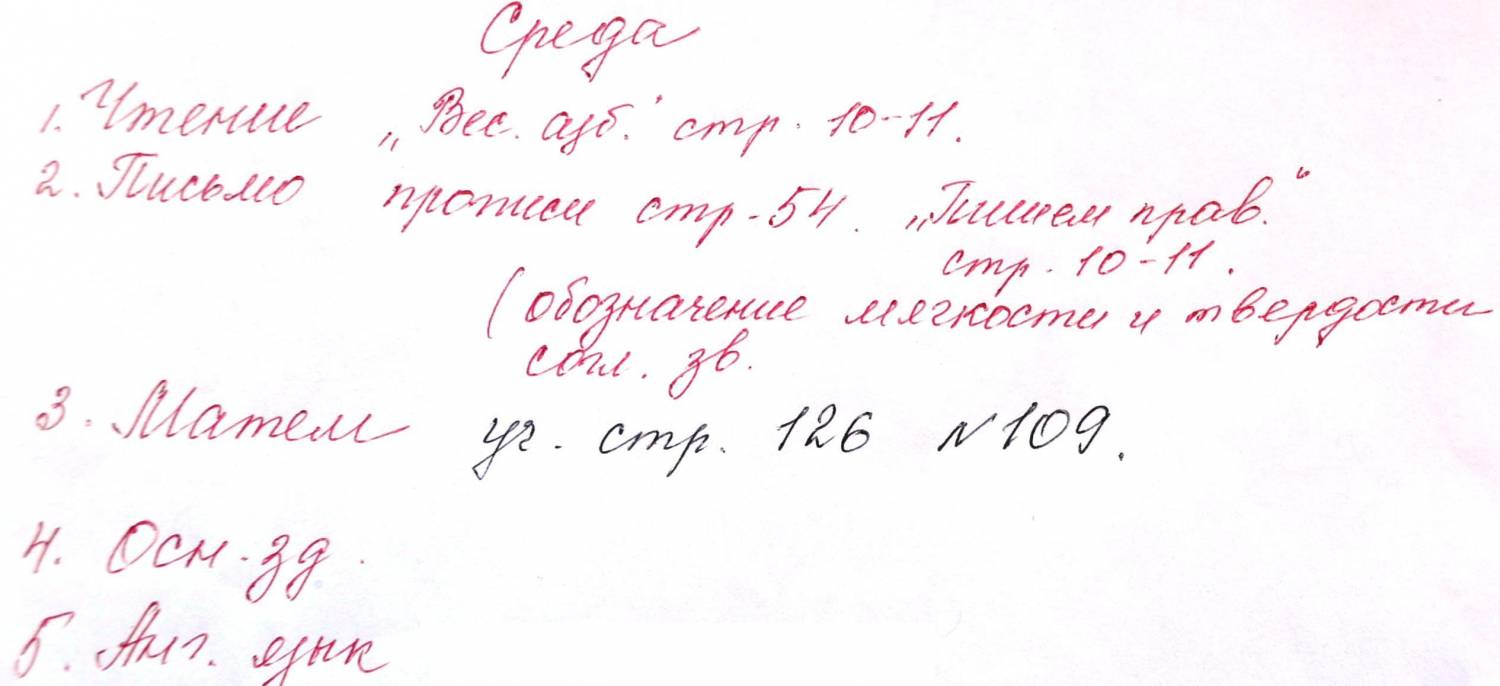 Среда
1. Чтение „Вес. азб." стр. 10-11.
2. Письмо прописи стр-54. „Пишем прав."
стр. 10-11.
(обозначение мягкости и твердости
согл. зв.
3. Матем уч. стр. 126 №109.
4. Осн. зд.
5. Анг. язык